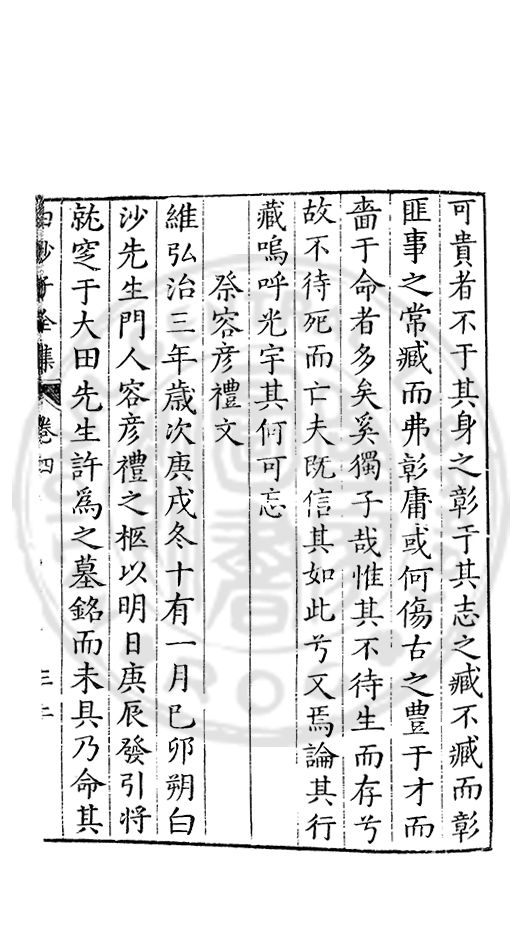 可貴者不于其身之彰于其志之臧不臧而彰
匪事之常臧而弗彰庸或何傷古之豊于才而
嗇于命者多矣奚獨子哉惟其不待生而存兮
故不待死而亡夫既信其如此兮又焉論其行
藏嗚呼光宇其何可忘
祭容彦禮文
維弘治三年歲次庚戌冬十有一月己卯朔白
沙先生門人容彦禮之柩以明日庚辰發引將
就窆于大田先生許為之墓銘而未具乃命其
白沙子全集 卷四